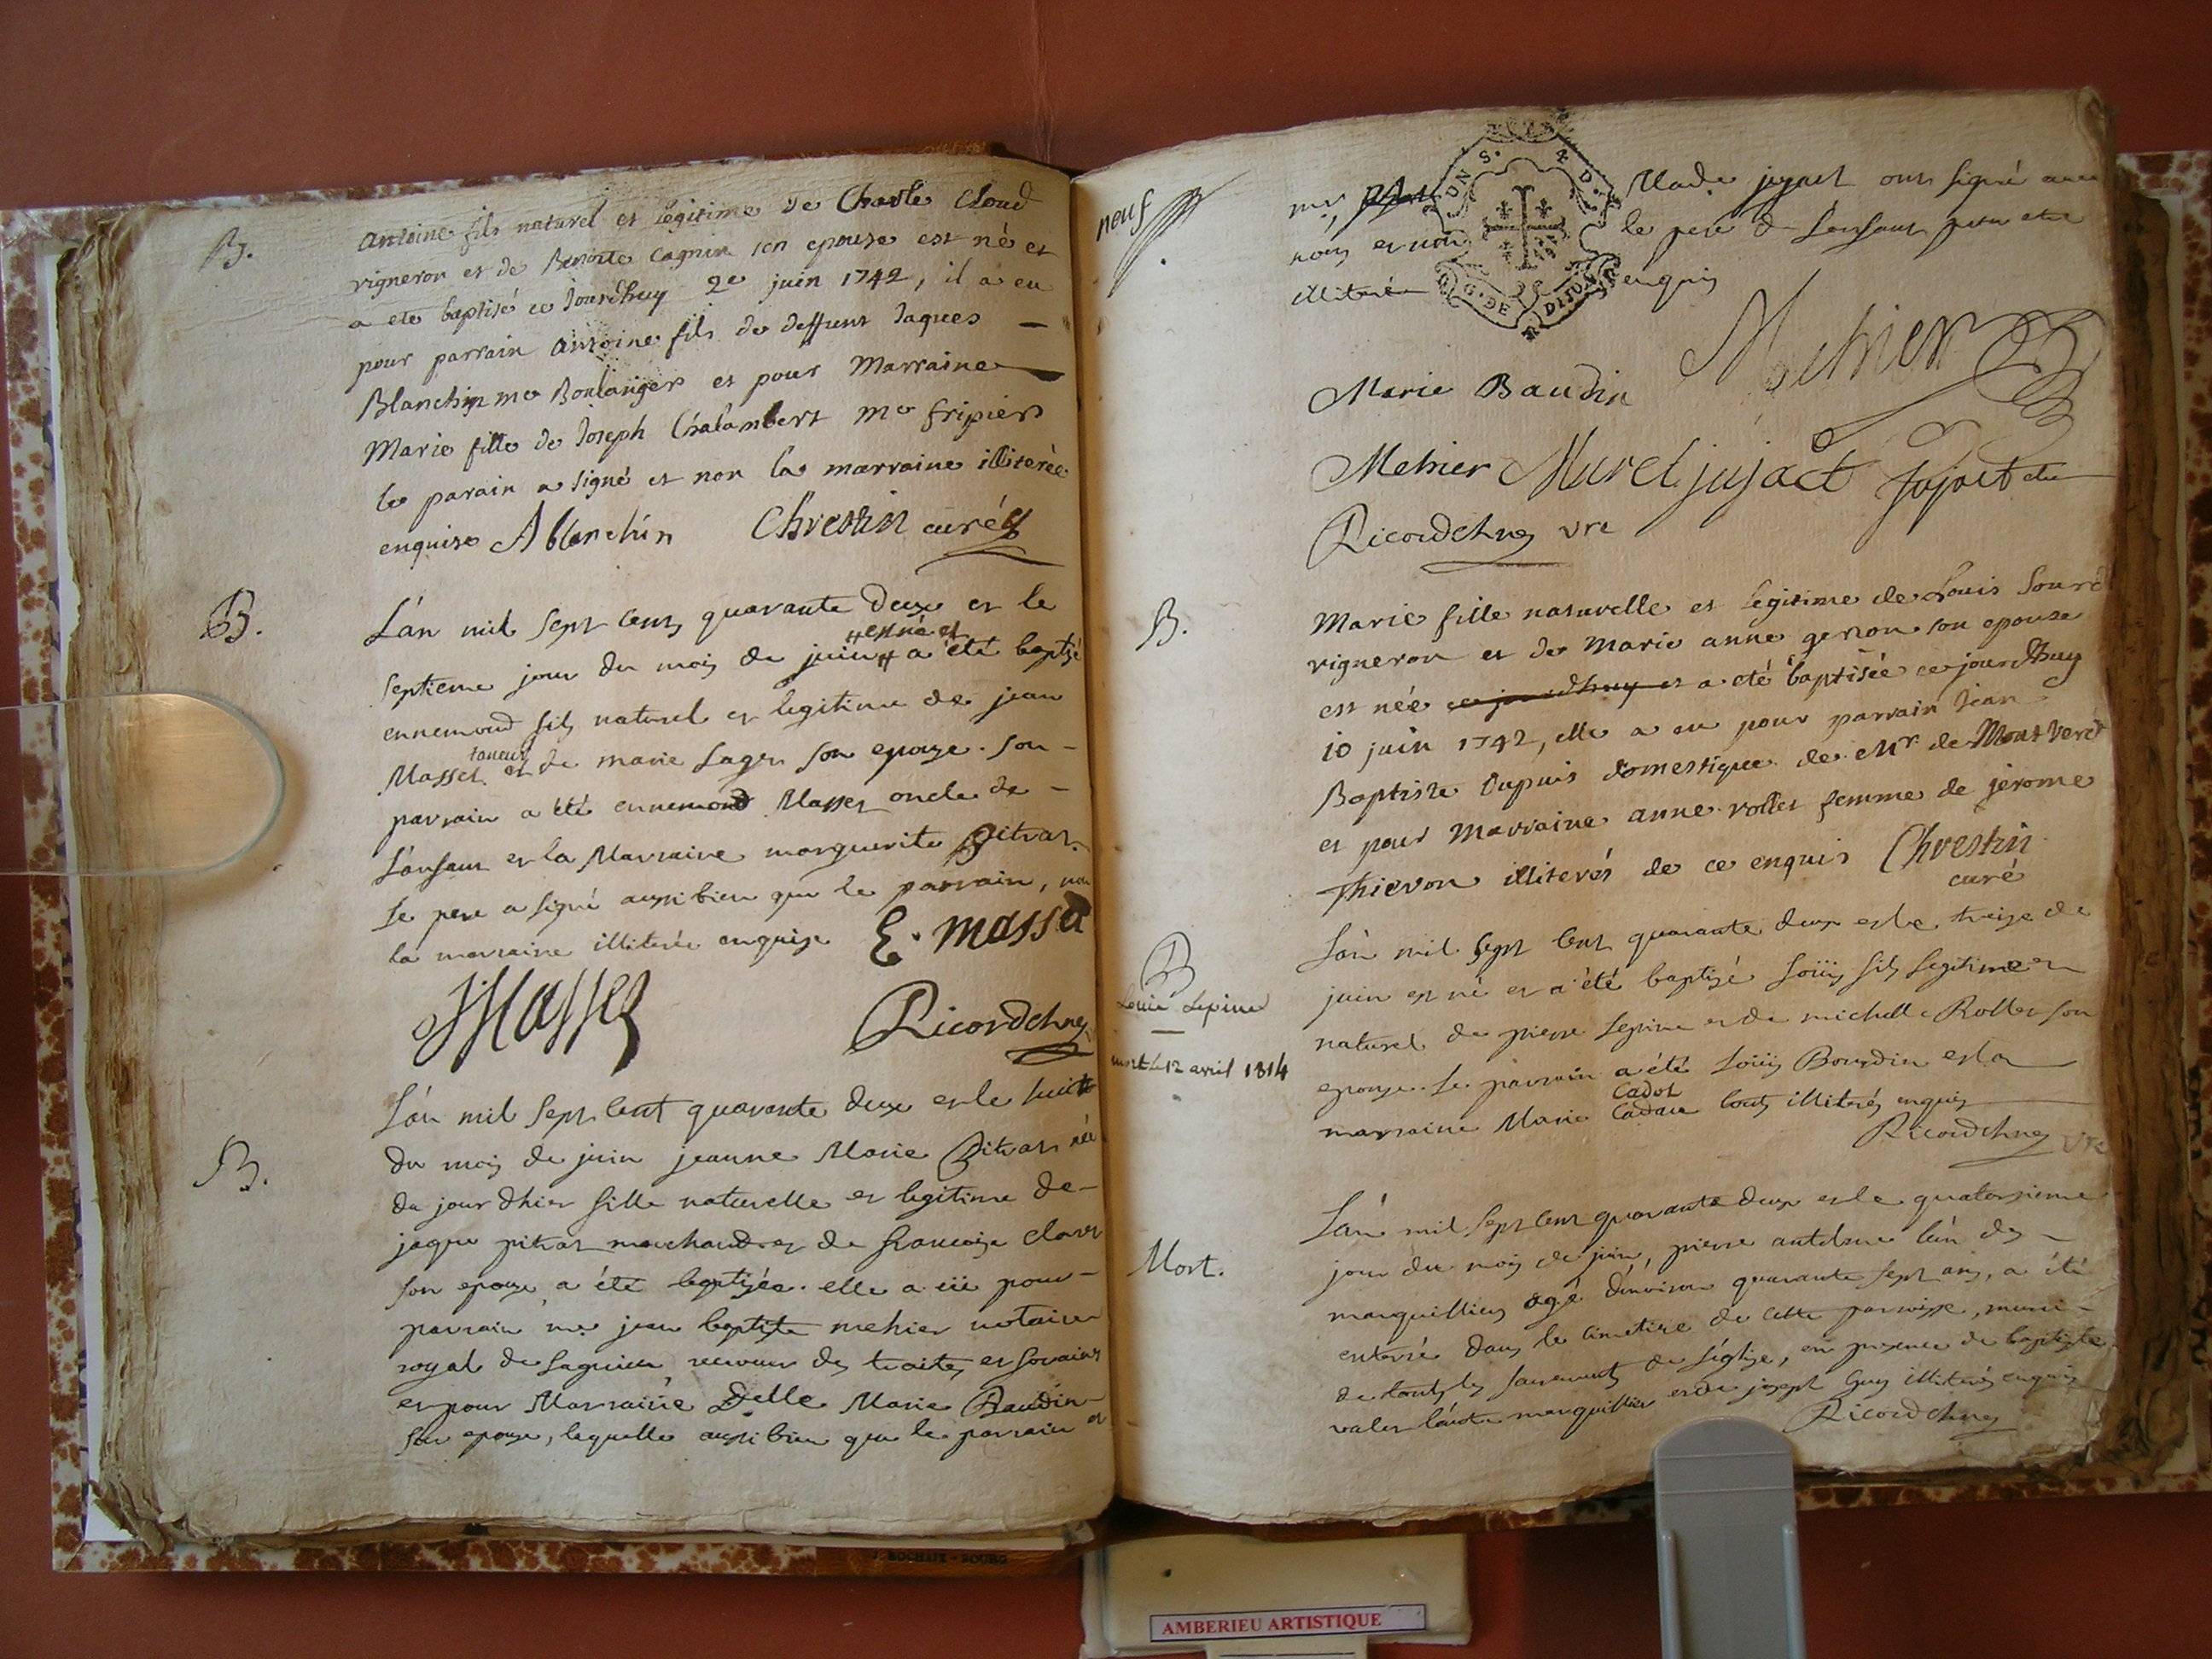 B.
antoine fils naturel et légitime de Charle Cloud
vigneron et de Benoite Cagnin son epouse est né et
a eté baptisé ce Jourdhuy 2e juin 1742, il a eu
pour parrain antoine fils de deffunt Jaques
Blanchin me Boulanger et pour Marraine
Marie fille de Joseph Chalambert me fripier
le parain a signé et non la marraine illiterée
enquise A blanchin Chrestin curé
B.
L'an mil sept cents quarante deux et le
est né et
septieme jour du mois de juin a été baptisé
ennemond fils naturel et legitime de jean
taneur
Masset et de marie Lager son epouze. son
parrain a été ennemond Masset oncle de
L'enfant et la Marraine marguerite pitrat.
Le pere a signé aussi bien que le parrain, non
la marraine illiterée enquise E. masset
Masset
Ricordchney
B.
L'an mil sept cent quarante deux et le huit
du mois de juin jeanne Marie Pitrat née
du jour dhier fille naturelle et legitime de
jaque pitrat marchand et de francoise
son epouze a été baptizée. elle a eü pour
parrain me jean baptiste mehier notaire
royal de Lagnieu receveur des traites et
et pour Marraine Delle Marie Baudin
son epouze, laquelle aussi bien que le parrain et
neuf
jujact ont signé avec
nous et non le pere de Lenfant pour etre
illiteré enquis
G. DE DIJON
Marie Baudin Mehier
Mehier Murel jujact Jujact
Ricordchney vre
B.
Marie fille naturelle et legitime de Louis Sourd
vigneron et de Marie anne gerron son epouse
est née ce jourdhuy et a eté baptisée ce jourdhuy
10 juin 1742, elle a eu pour parrain Jean
Baptiste Dupuis domestique de Mr de Montverd
et pour Marraine anne rollet femme de jerome
Thievon illiterés de ce enquis Chrestin
curé
B
Louis Lepine
mort le 12 avril 1814
L'an mil sept cent quarante deux et le treize de
juin est né et a été baptizé Loüis fils legitime et
naturel de pierre Lepine et de michelle Rollet son
epouze. Le parrain a été Loüis Bourdin et la
Cadot
marraine Marie touts illiterés enquis
Ricordchney vre
Mort.
L'an mil sept cent quarante deux et le quatorzieme
jour du mois de juin, pierre antelme l'un des
marguilliers agé d'environ quarante sept ans, a été
enterré dans le cimetire de cette parroisse, muni
de touts les sacrements de l'église, en presence de baptiste
valer l'autre marguillier et de joseph Guy illiterés enquis
Ricordchney
J. ROCHAIX - BOURG
AMBERIEU ARTISTIQUE